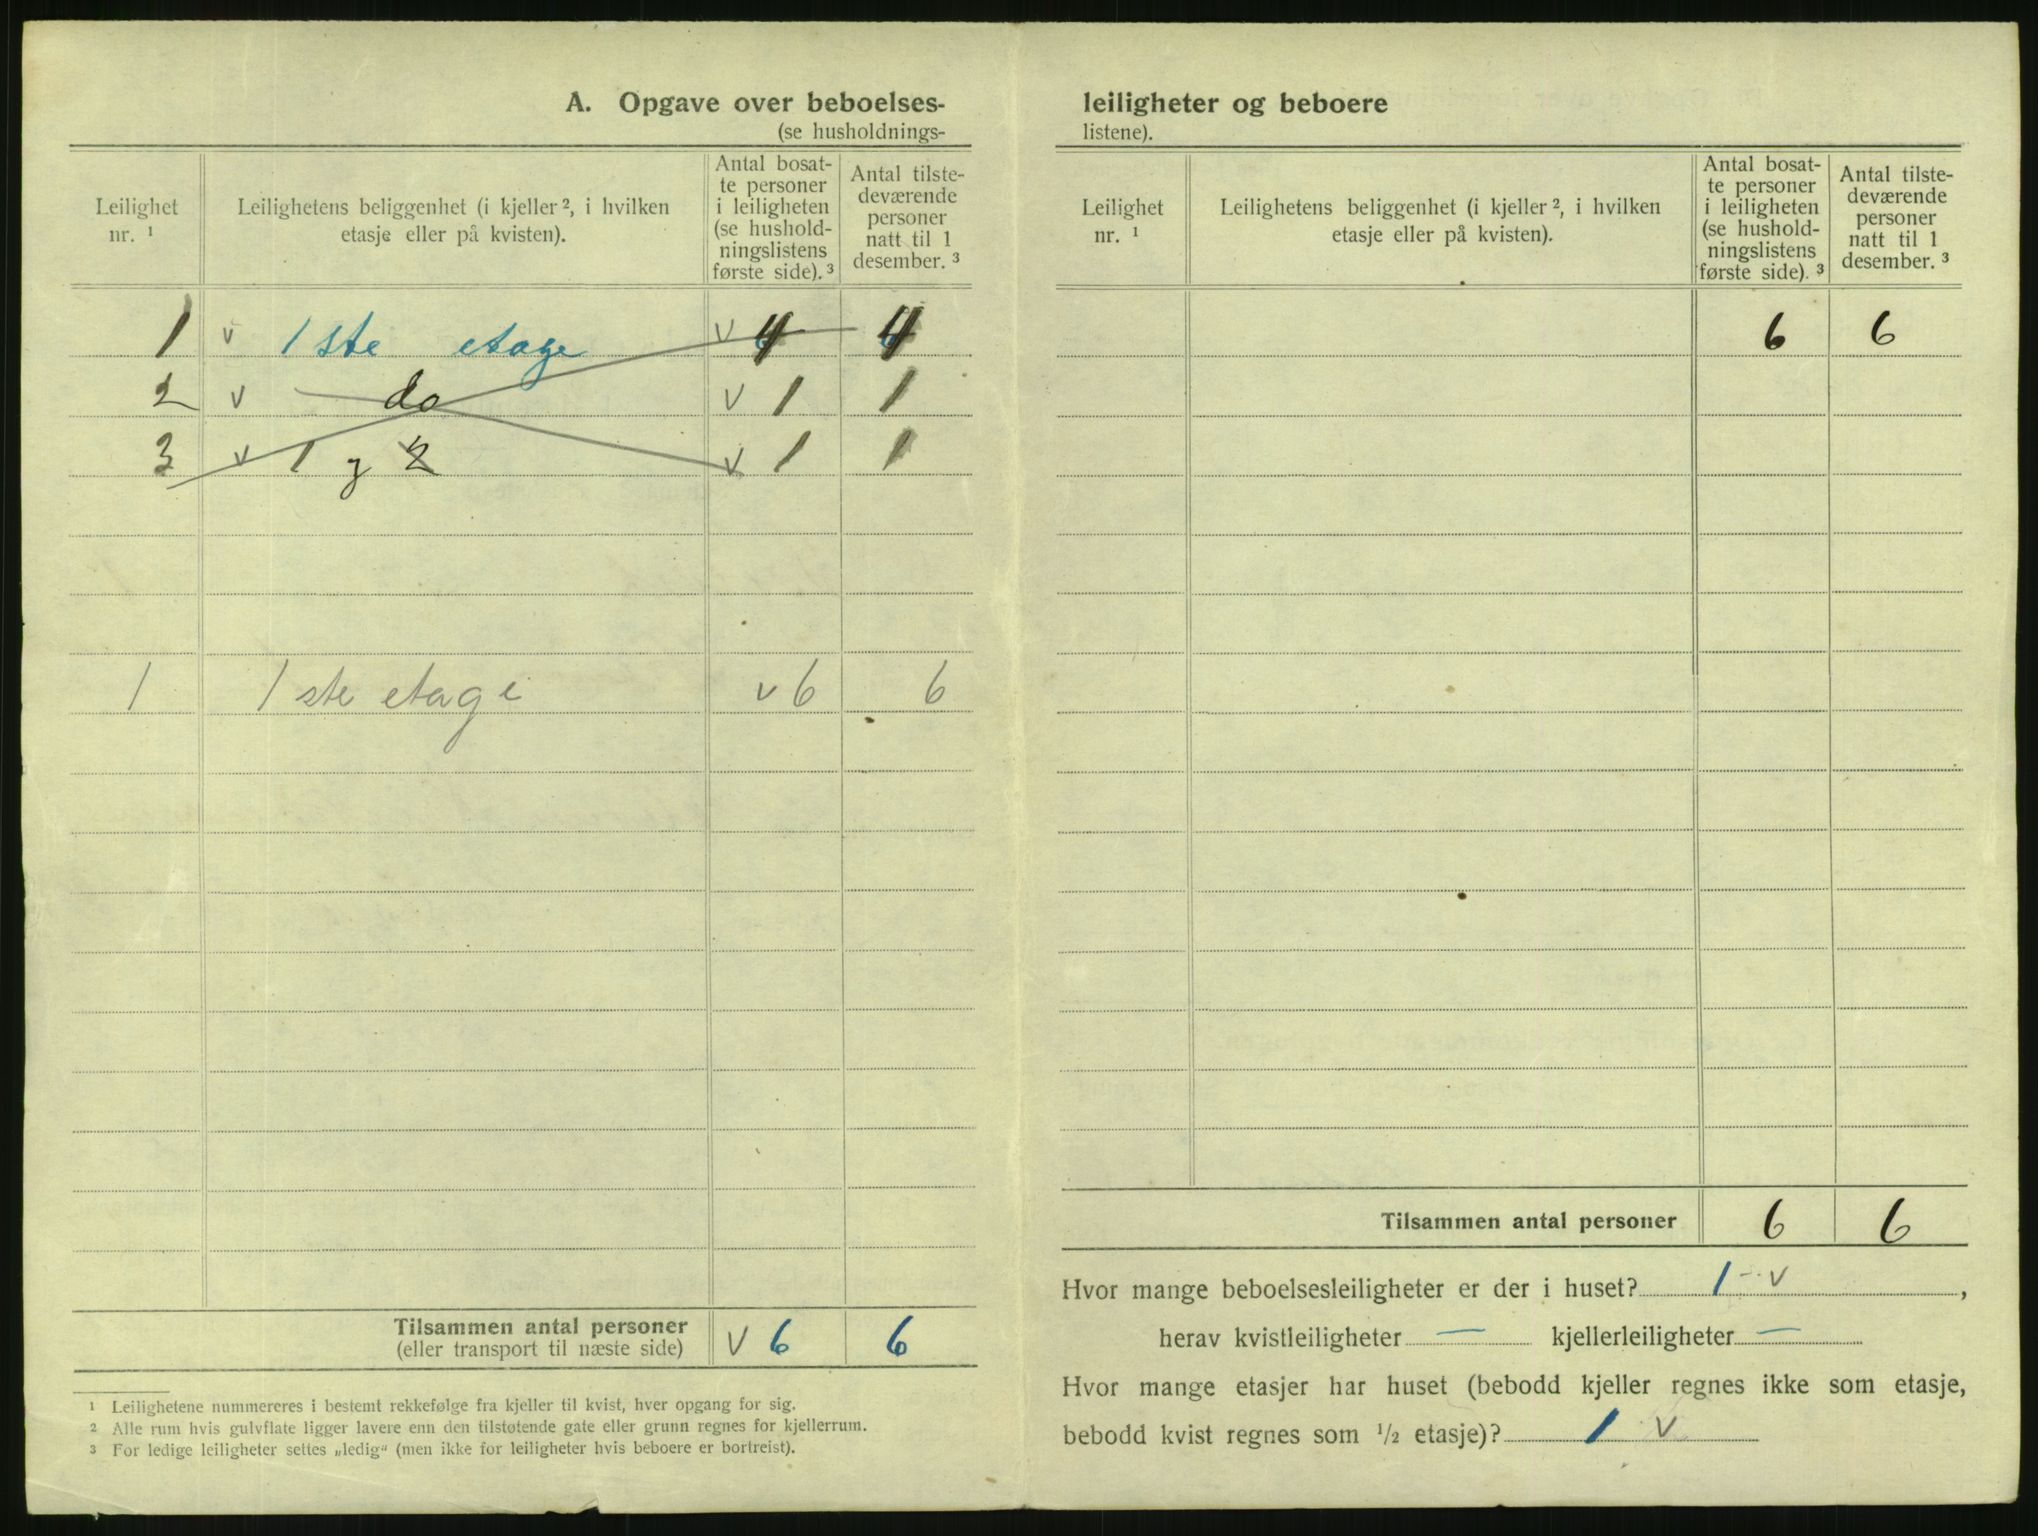 A. Opgave over beboelses-
(se husholdnings-
Leilighet nr. ¹
Leilighetens beliggenhet (i kjeller ², i hvilken etasje eller på kvisten).
Antal bosatte personer i leiligheten (se husholdningslistens første side). ³
Antal tilstedeværende personer natt til 1 desember. ³
1 v 1ste etage v 4 4
2 v do v 1 1
3 v 1 og 2 v 1 1
1 1ste etage v 6 6
Tilsammen antal personer v 6 6
(eller transport til næste side)
¹ Leilighetene nummereres i bestemt rekkefølge fra kjeller til kvist, hver opgang for sig.
² Alle rum hvis gulvflate ligger lavere enn den tilstøtende gate eller grunn regnes for kjellerrum.
³ For ledige leiligheter settes „ledig“ (men ikke for leiligheter hvis beboere er bortreist).
leiligheter og beboere
listene).
Leilighet nr. ¹
Leilighetens beliggenhet (i kjeller ², i hvilken etasje eller på kvisten).
Antal bosatte personer i leiligheten (se husholdningslistens første side). ³
Antal tilstedeværende personer natt til 1 desember. ³
6 6
Tilsammen antal personer 6 6
Hvor mange beboelsesleiligheter er der i huset? 1 - v ,
herav kvistleiligheter — kjellerleiligheter —
Hvor mange etasjer har huset (bebodd kjeller regnes ikke som etasje,
bebodd kvist regnes som ½ etasje)? 1 v